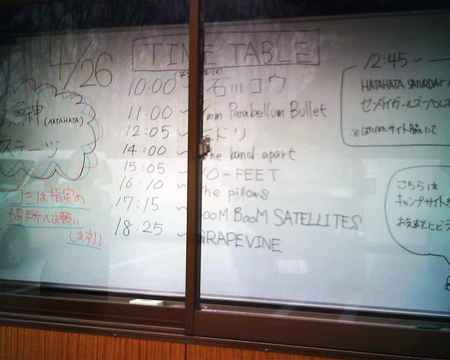 4/26
TIME TABLE
10:00 ~ 石川コウ
11:00 ~ mm Parabellum Bullet
12:05 ~ ミドリ
14:00 ~ the band apart
15:05 ~ 10-FEET
16:10 ~ the pillows
17:15 ~ BOOM BOOM SATELLITES
18:25 ~ GRAPEVINE
神
(HATAHATA)
ステージ
ゴミは指定の
場所へお願い
します!!
12:45 ~
HATAHATA SATURDAY
センダイガールズプロレス
サイト脇にて
こちらは
キャンプサイト
お気軽にどう